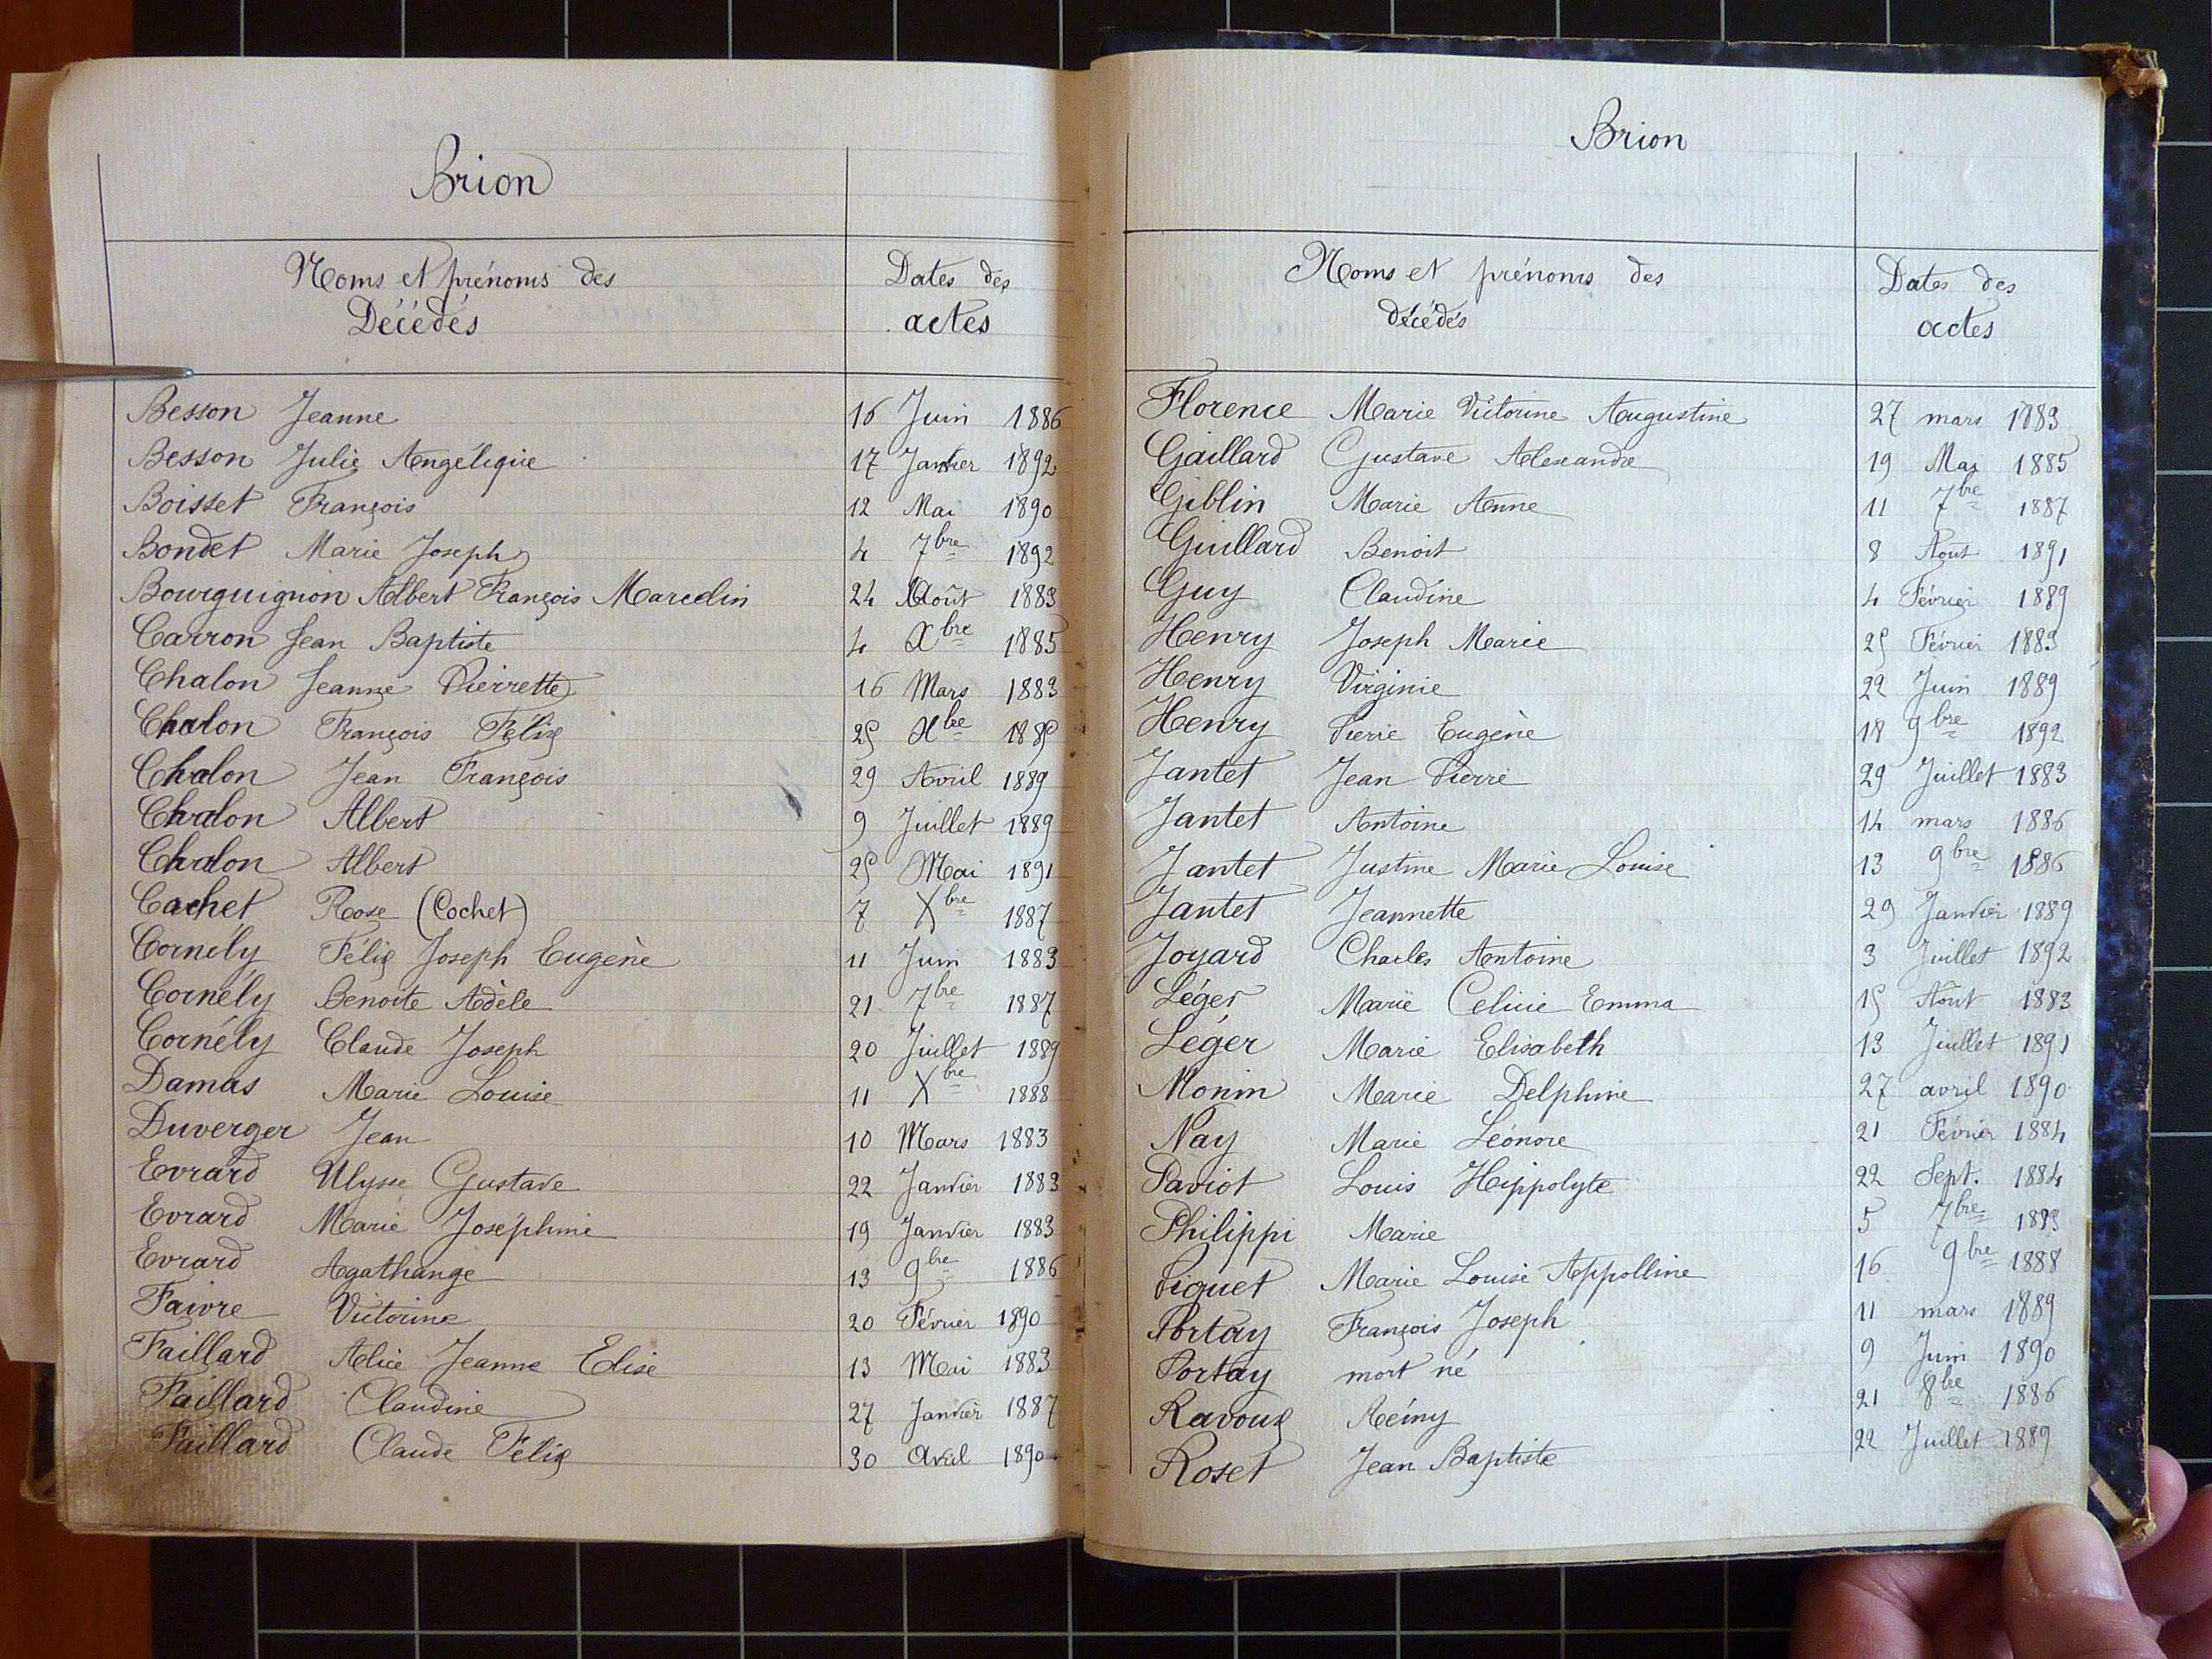 Brion
Noms et prénoms des
Décédés
Dates des
actes
Besson Jeanne 16 Juin 1886
Besson Julie Angélique 17 Janvier 1892
Boisset François 12 Mai 1890
Bondet Marie Joseph 4 7bre 1892
Bourguignon Albert François Marcelin 24 Août 1883
Carron Jean Baptiste 4 Xbre 1885
Chalon Jeanne Pierrette 16 Mars 1883
Chalon François Félix 25 Xbre 1885
Chalon Jean François 29 Avril 1889
Chalon Albert 9 Juillet 1889
Chalon Albert 25 Mai 1891
Cachet Rose (Cochet) 7 Xbre 1887
Cornély Félix Joseph Eugène 11 Juin 1883
Cornély Benoite Adèle 21 7bre 1887
Cornély Claude Joseph 20 Juillet 1889
Damas Marie Louise 11 Xbre 1888
Duverger Jean 10 Mars 1883
Evrard Ulysse Gustave 22 Janvier 1883
Evrard Marie Joséphine 19 Janvier 1883
Evrard Agathange 13 9bre 1886
Faivre Victorine 20 Février 1890
Faillard Alice Jeanne Elise 13 Mai 1883
Faillard Claudine 27 Janvier 1887
Faillard Claude Félix 30 Avril 1890
Brion
Noms et prénoms des
décédés
Dates des
actes
Florence Marie Victorine Augustine 27 mars 1883
Gaillard Gustave Alexandre 19 Mai 1885
Giblin Marie Anne 11 7bre 1887
Guillard Benoit 8 Aout 1891
Guy Claudine 4 Février 1889
Henry Joseph Marie 25 Février 1883
Henry Virginie 22 Juin 1889
Henry Pierre Eugène 18 9bre 1892
Jantet Jean Pierre 29 Juillet 1883
Jantet Antoine 14 mars 1886
Jantet Justine Marie Louise 13 9bre 1886
Jantet Jeannette 29 Janvier 1889
Joyard Charles Antoine 3 Juillet 1892
Léger Marie Celine Emma 15 Aout 1883
Léger Marie Elisabeth 13 Juillet 1891
Monin Marie Delphine 27 avril 1890
Nay Marie Léonore 21 Février 1884
Paviot Louis Hippolyte 22 Sept. 1884
Philippi Marie 5 7bre
Piguet Marie Louise Appolline 16 9bre 1888
Portay François Joseph 11 mars 1889
Portay mort né 9 Juin 1890
Ravoux Rémy 21 8bre 1886
Roset Jean Baptiste 22 Juillet 1889